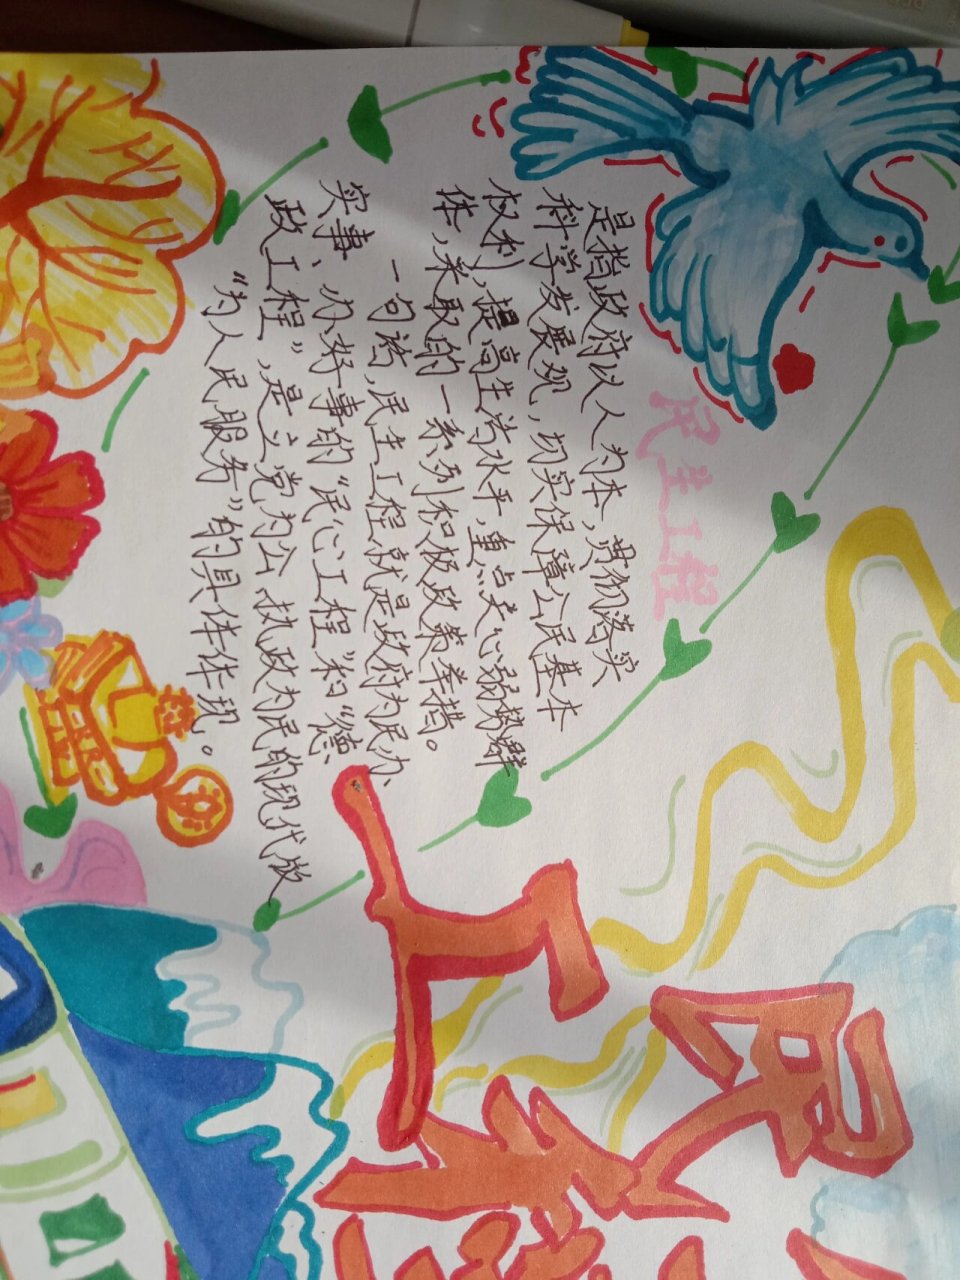 民生工程
是指政府以人为本，贯彻落实
科学发展观，切实保障公民基本
权利，提高生活水平，重点关心弱势群
体，采取的一系列积极政策举措。
一句话，民生工程就是政府为民办
实事、办好事的“民心工程”和“德
政工程”，是立党为公、执政为民的现代版
“为人民服务”的具体体现。
民
工